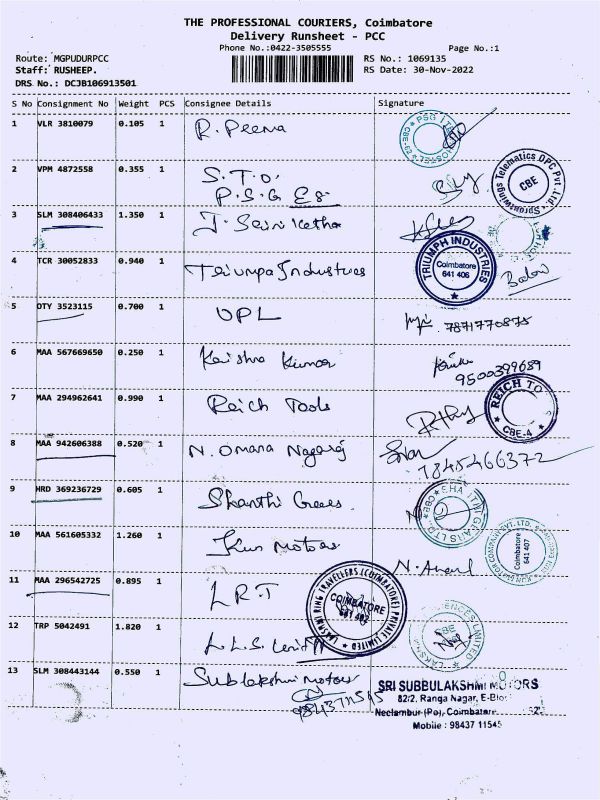 THE PROFESSIONAL COURIERS, Coimbatore
Delivery Runsheet - PCC
Phone No.:0422-3505555
Page No.:1
Route: MGPUDURPCC
RS No.: 1069135
Staff: RUSHEEP.
RS Date: 30-Nov-2022
DRS No.: DCJB106913501
S No Consignment No Weight PCS Consignee Details Signature
1 VLR 3810079 0.105 1 R. Peema
PSG
2 VPM 4872558 0.355 1 S.T.O.
P.S.G
Sprowtwings Telematics OPC Pvt. Ltd. CBE
3 SLM 308406433 1.350 1
4 TCR 30052833 0.940 1 Triumpa Industries
TRIUMPH INDUSTRIES
Coimbatore
641 406
Balan
5 DTY 3523115 0.700 1 UPL
7871770875
6 MAA 567669650 0.250 1 Krishna Kumar
9500399689
7 MAA 294962641 0.990 1 Reich Tools
REICH TO
CBE-4
8 MAA 942606388 0.520 1 N. Omana Nagaraj
7845466372
9 HRD 369236729 0.605 1 Shanthi Gears
GEARS LTD. CBE
10 MAA 561605332 1.260 1 Motors
N. Anand
Coimbatore
641 407
11 MAA 296542725 0.895 1 L.R.T
LAKSHMI RING TRAVELLERS (COIMBATORE) PRIVATE LIMITED
COIMBATORE
641 402
12 TRP 5042491 1.820 1 L.L.S.
CBE
13 SLM 308443144 0.550 1 Sublakshmi Motors
9843711545
SRI SUBBULAKSHMI MOTORS
82/2, Ranga Nagar,
Neelambur (Po), Coimbatore
Mobile : 98437 11545